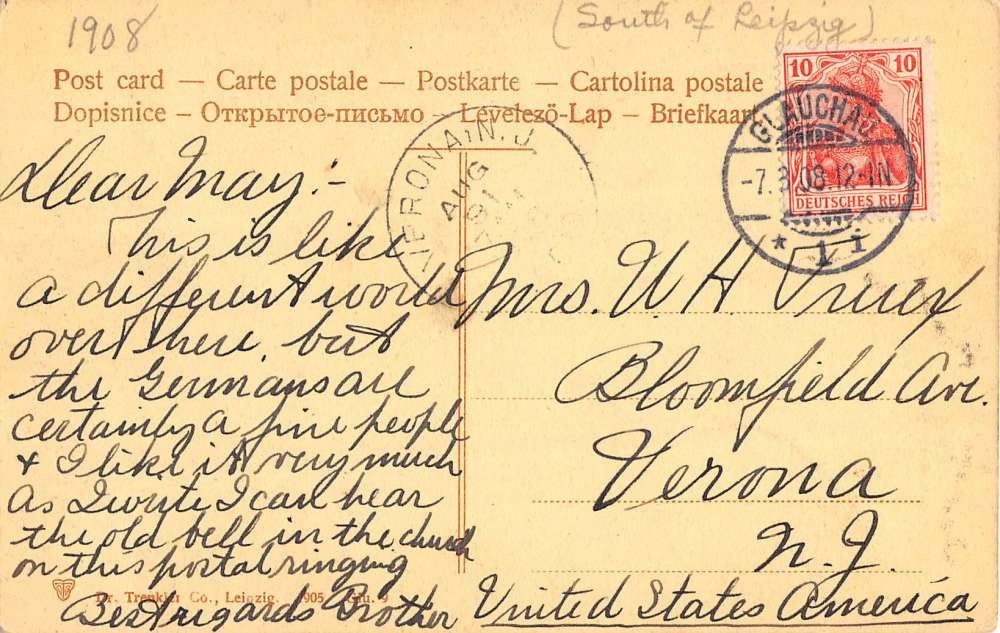 1908
(South of Leipzig)
Post card — Carte postale — Postkarte — Cartolina postale
Dopisnice — Открытое-письмо — Levelező-Lap — Briefkaart
10 10
DEUTSCHES REICH
GLAUCHAU
-7.8.08.12-1N
* 1 i
VERONA, N.J.
AUG
Dear May:-
This is like
a different world
over here, but
the Germans are
certainly a fine people
& I like it very much
As I write I can hear
the old bell in the church
on this postal ringing
Best regards Brother
Mrs. W. H. Truex
Bloomfield Ave.
Verona
N. J.
United States America
Dr. Trenkler Co., Leipzig. 1905